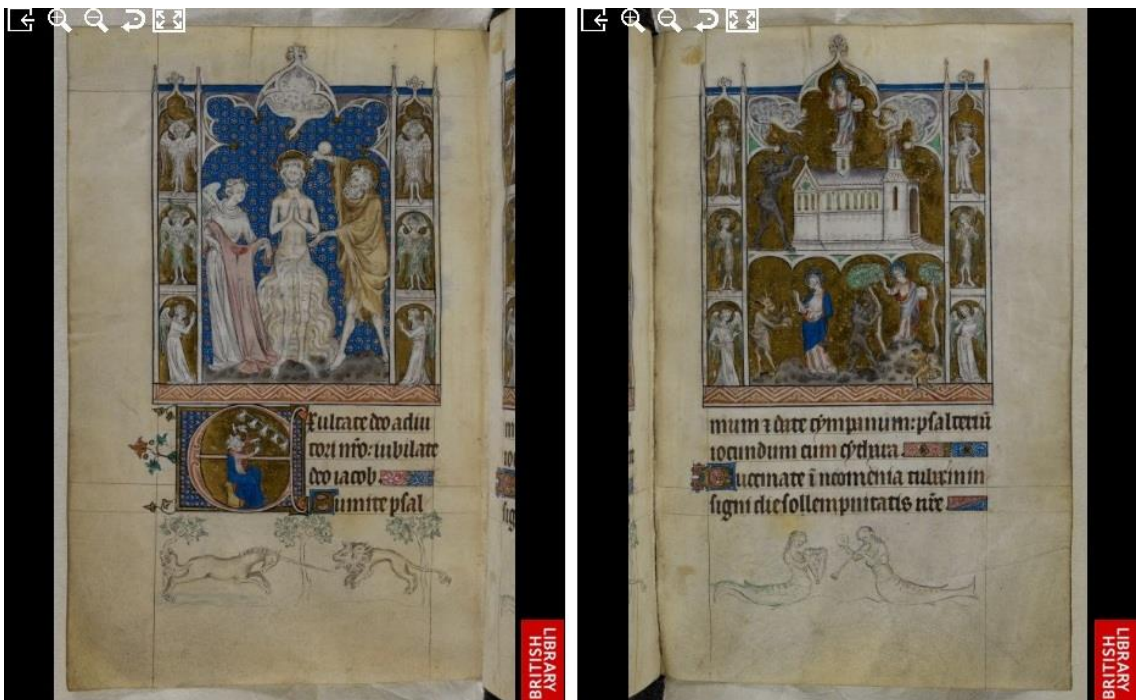 Exultate deo adiu
tori nr̄o: iubilate
deo iacob
Sumite psal
BRITISH
LIBRARY
mum ⁊ date tẏmpanum: psalteriū
iocundum cum cẏthara
Bucinate ī neomenia tuba: in in
signi die sollempnitatis nr̄e
BRITISH
LIBRARY